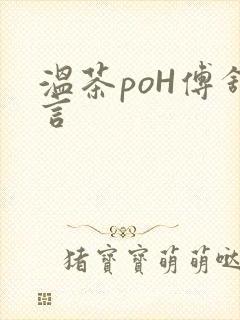 溫茶poH傅舒
言
猪寶寶萌萌噠